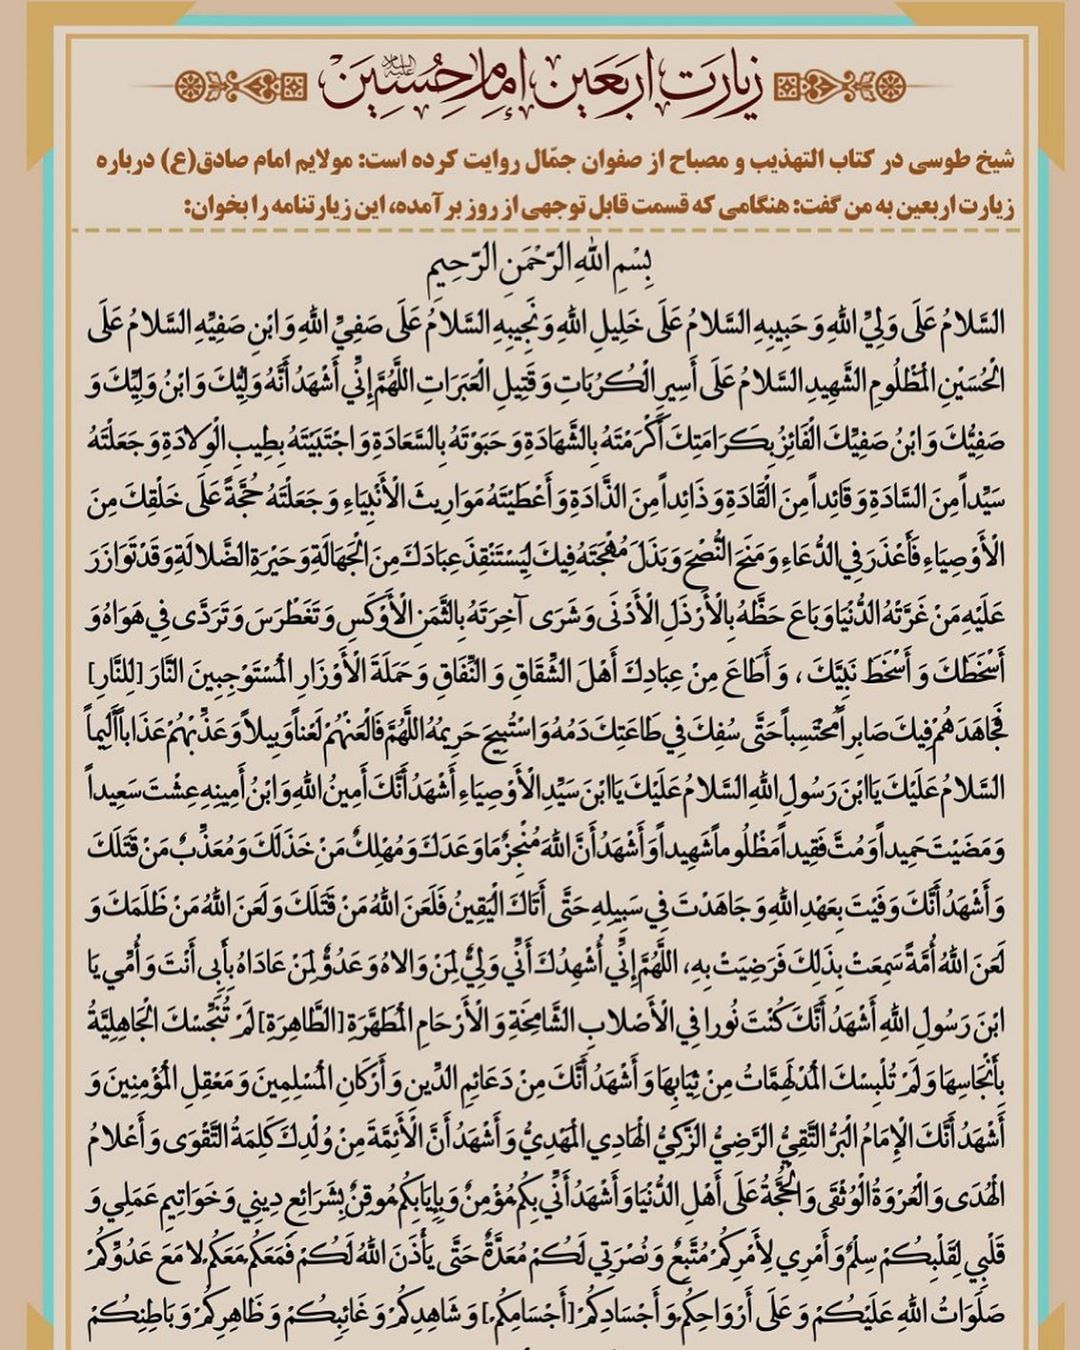 زیارت اربعین امام حسین علیه السلام
شیخ طوسی در کتاب التهذیب و مصباح از صفوان جمّال روایت کرده است: مولایم امام صادق(ع) درباره
زیارت اربعین به من گفت: هنگامی که قسمت قابل توجهی از روز بر آمده، این زیارتنامه را بخوان:
بِسْمِ اللهِ الرَّحْمَنِ الرَّحِيمِ
السَّلامُ عَلَى وَلِيِّ اللهِ وَ حَبِيبِهِ السَّلامُ عَلَى خَلِيلِ اللهِ وَ نَجِيبِهِ السَّلامُ عَلَى صَفِيِّ اللهِ وَ ابْنِ صَفِيِّهِ السَّلامُ عَلَى
الْحُسَيْنِ الْمَظْلُومِ الشَّهِيدِ السَّلامُ عَلَى أَسِيرِ الْكُرُبَاتِ وَ قَتِيلِ الْعَبَرَاتِ اللَّهُمَّ إِنِّي أَشْهَدُ أَنَّهُ وَلِيُّكَ وَ ابْنُ وَلِيِّكَ وَ
صَفِيُّكَ وَ ابْنُ صَفِيِّكَ الْفَائِزُ بِكَرَامَتِكَ أَكْرَمْتَهُ بِالشَّهَادَةِ وَ حَبَوْتَهُ بِالسَّعَادَةِ وَ اجْتَبَيْتَهُ بِطِيبِ الْوِلادَةِ وَ جَعَلْتَهُ
سَيِّداً مِنَ السَّادَةِ وَ قَائِداً مِنَ الْقَادَةِ وَ ذَائِداً مِنَ الذَّادَةِ وَ أَعْطَيْتَهُ مَوَارِيثَ الْأَنْبِيَاءِ وَ جَعَلْتَهُ حُجَّةً عَلَى خَلْقِكَ مِنَ
الْأَوْصِيَاءِ فَأَعْذَرَ فِي الدُّعَاءِ وَ مَنَحَ النُّصْحَ وَ بَذَلَ مُهْجَتَهُ فِيكَ لِيَسْتَنْقِذَ عِبَادَكَ مِنَ الْجَهَالَةِ وَ حَيْرَةِ الضَّلالَةِ وَ قَدْ تَوَازَرَ
عَلَيْهِ مَنْ غَرَّتْهُ الدُّنْيَا وَ بَاعَ حَظَّهُ بِالْأَرْذَلِ الْأَدْنَى وَ شَرَى آخِرَتَهُ بِالثَّمَنِ الْأَوْكَسِ وَ تَغَطْرَسَ وَ تَرَدَّى فِي هَوَاهُ وَ
أَسْخَطَكَ وَ أَسْخَطَ نَبِيَّكَ ، وَ أَطَاعَ مِنْ عِبَادِكَ أَهْلَ الشِّقَاقِ وَ النِّفَاقِ وَ حَمَلَةَ الْأَوْزَارِ الْمُسْتَوْجِبِينَ النَّارَ [لِلنَّارِ]
فَجَاهَدَهُمْ فِيكَ صَابِراً مُحْتَسِباً حَتَّى سُفِكَ فِي طَاعَتِكَ دَمُهُ وَ اسْتُبِيحَ حَرِيمُهُ اللَّهُمَّ فَالْعَنْهُمْ لَعْناً وَبِيلاً وَ عَذِّبْهُمْ عَذَاباً أَلِيماً
السَّلامُ عَلَيْكَ يَا ابْنَ رَسُولِ اللهِ السَّلامُ عَلَيْكَ يَا ابْنَ سَيِّدِ الْأَوْصِيَاءِ أَشْهَدُ أَنَّكَ أَمِينُ اللهِ وَ ابْنُ أَمِينِهِ عِشْتَ سَعِيداً
وَ مَضَيْتَ حَمِيداً وَ مُتَّ فَقِيداً مَظْلُوماً شَهِيداً وَ أَشْهَدُ أَنَّ اللهَ مُنْجِزٌ مَا وَعَدَكَ وَ مُهْلِكٌ مَنْ خَذَلَكَ وَ مُعَذِّبٌ مَنْ قَتَلَكَ
وَ أَشْهَدُ أَنَّكَ وَفَيْتَ بِعَهْدِ اللهِ وَ جَاهَدْتَ فِي سَبِيلِهِ حَتَّى أَتَاكَ الْيَقِينُ فَلَعَنَ اللهُ مَنْ قَتَلَكَ وَ لَعَنَ اللهُ مَنْ ظَلَمَكَ وَ
لَعَنَ اللهُ أُمَّةً سَمِعَتْ بِذَلِكَ فَرَضِيَتْ بِهِ، اللَّهُمَّ إِنِّي أُشْهِدُكَ أَنِّي وَلِيٌّ لِمَنْ وَالاهُ وَ عَدُوٌّ لِمَنْ عَادَاهُ بِأَبِي أَنْتَ وَ أُمِّي يَا
ابْنَ رَسُولِ اللهِ أَشْهَدُ أَنَّكَ كُنْتَ نُورا فِي الْأَصْلابِ الشَّامِخَةِ وَ الْأَرْحَامِ الْمُطَهَّرَةِ [الطَّاهِرَةِ] لَمْ تُنَجِّسْكَ الْجَاهِلِيَّةُ
بِأَنْجَاسِهَا وَ لَمْ تُلْبِسْكَ الْمُدْلَهِمَّاتُ مِنْ ثِيَابِهَا وَ أَشْهَدُ أَنَّكَ مِنْ دَعَائِمِ الدِّينِ وَ أَرْكَانِ الْمُسْلِمِينَ وَ مَعْقِلِ الْمُؤْمِنِينَ وَ
أَشْهَدُ أَنَّكَ الْإِمَامُ الْبَرُّ التَّقِيُّ الرَّضِيُّ الزَّكِيُّ الْهَادِي الْمَهْدِيُّ وَ أَشْهَدُ أَنَّ الْأَئِمَّةَ مِنْ وُلْدِكَ كَلِمَةُ التَّقْوَى وَ أَعْلامُ
الْهُدَى وَ الْعُرْوَةُ الْوُثْقَى وَ الْحُجَّةُ عَلَى أَهْلِ الدُّنْيَا وَ أَشْهَدُ أَنِّي بِكُمْ مُؤْمِنٌ وَ بِإِيَابِكُمْ مُوقِنٌ بِشَرَائِعِ دِينِي وَ خَوَاتِيمِ عَمَلِي وَ
قَلْبِي لِقَلْبِكُمْ سِلْمٌ وَ أَمْرِي لِأَمْرِكُمْ مُتَّبِعٌ وَ نُصْرَتِي لَكُمْ مُعَدَّةٌ حَتَّى يَأْذَنَ اللهُ لَكُمْ فَمَعَكُمْ مَعَكُمْ لا مَعَ عَدُوِّكُمْ
صَلَوَاتُ اللهِ عَلَيْكُمْ وَ عَلَى أَرْوَاحِكُمْ وَ أَجْسَادِكُمْ [أَجْسَامِكُمْ] وَ شَاهِدِكُمْ وَ غَائِبِكُمْ وَ ظَاهِرِكُمْ وَ بَاطِنِكُمْ